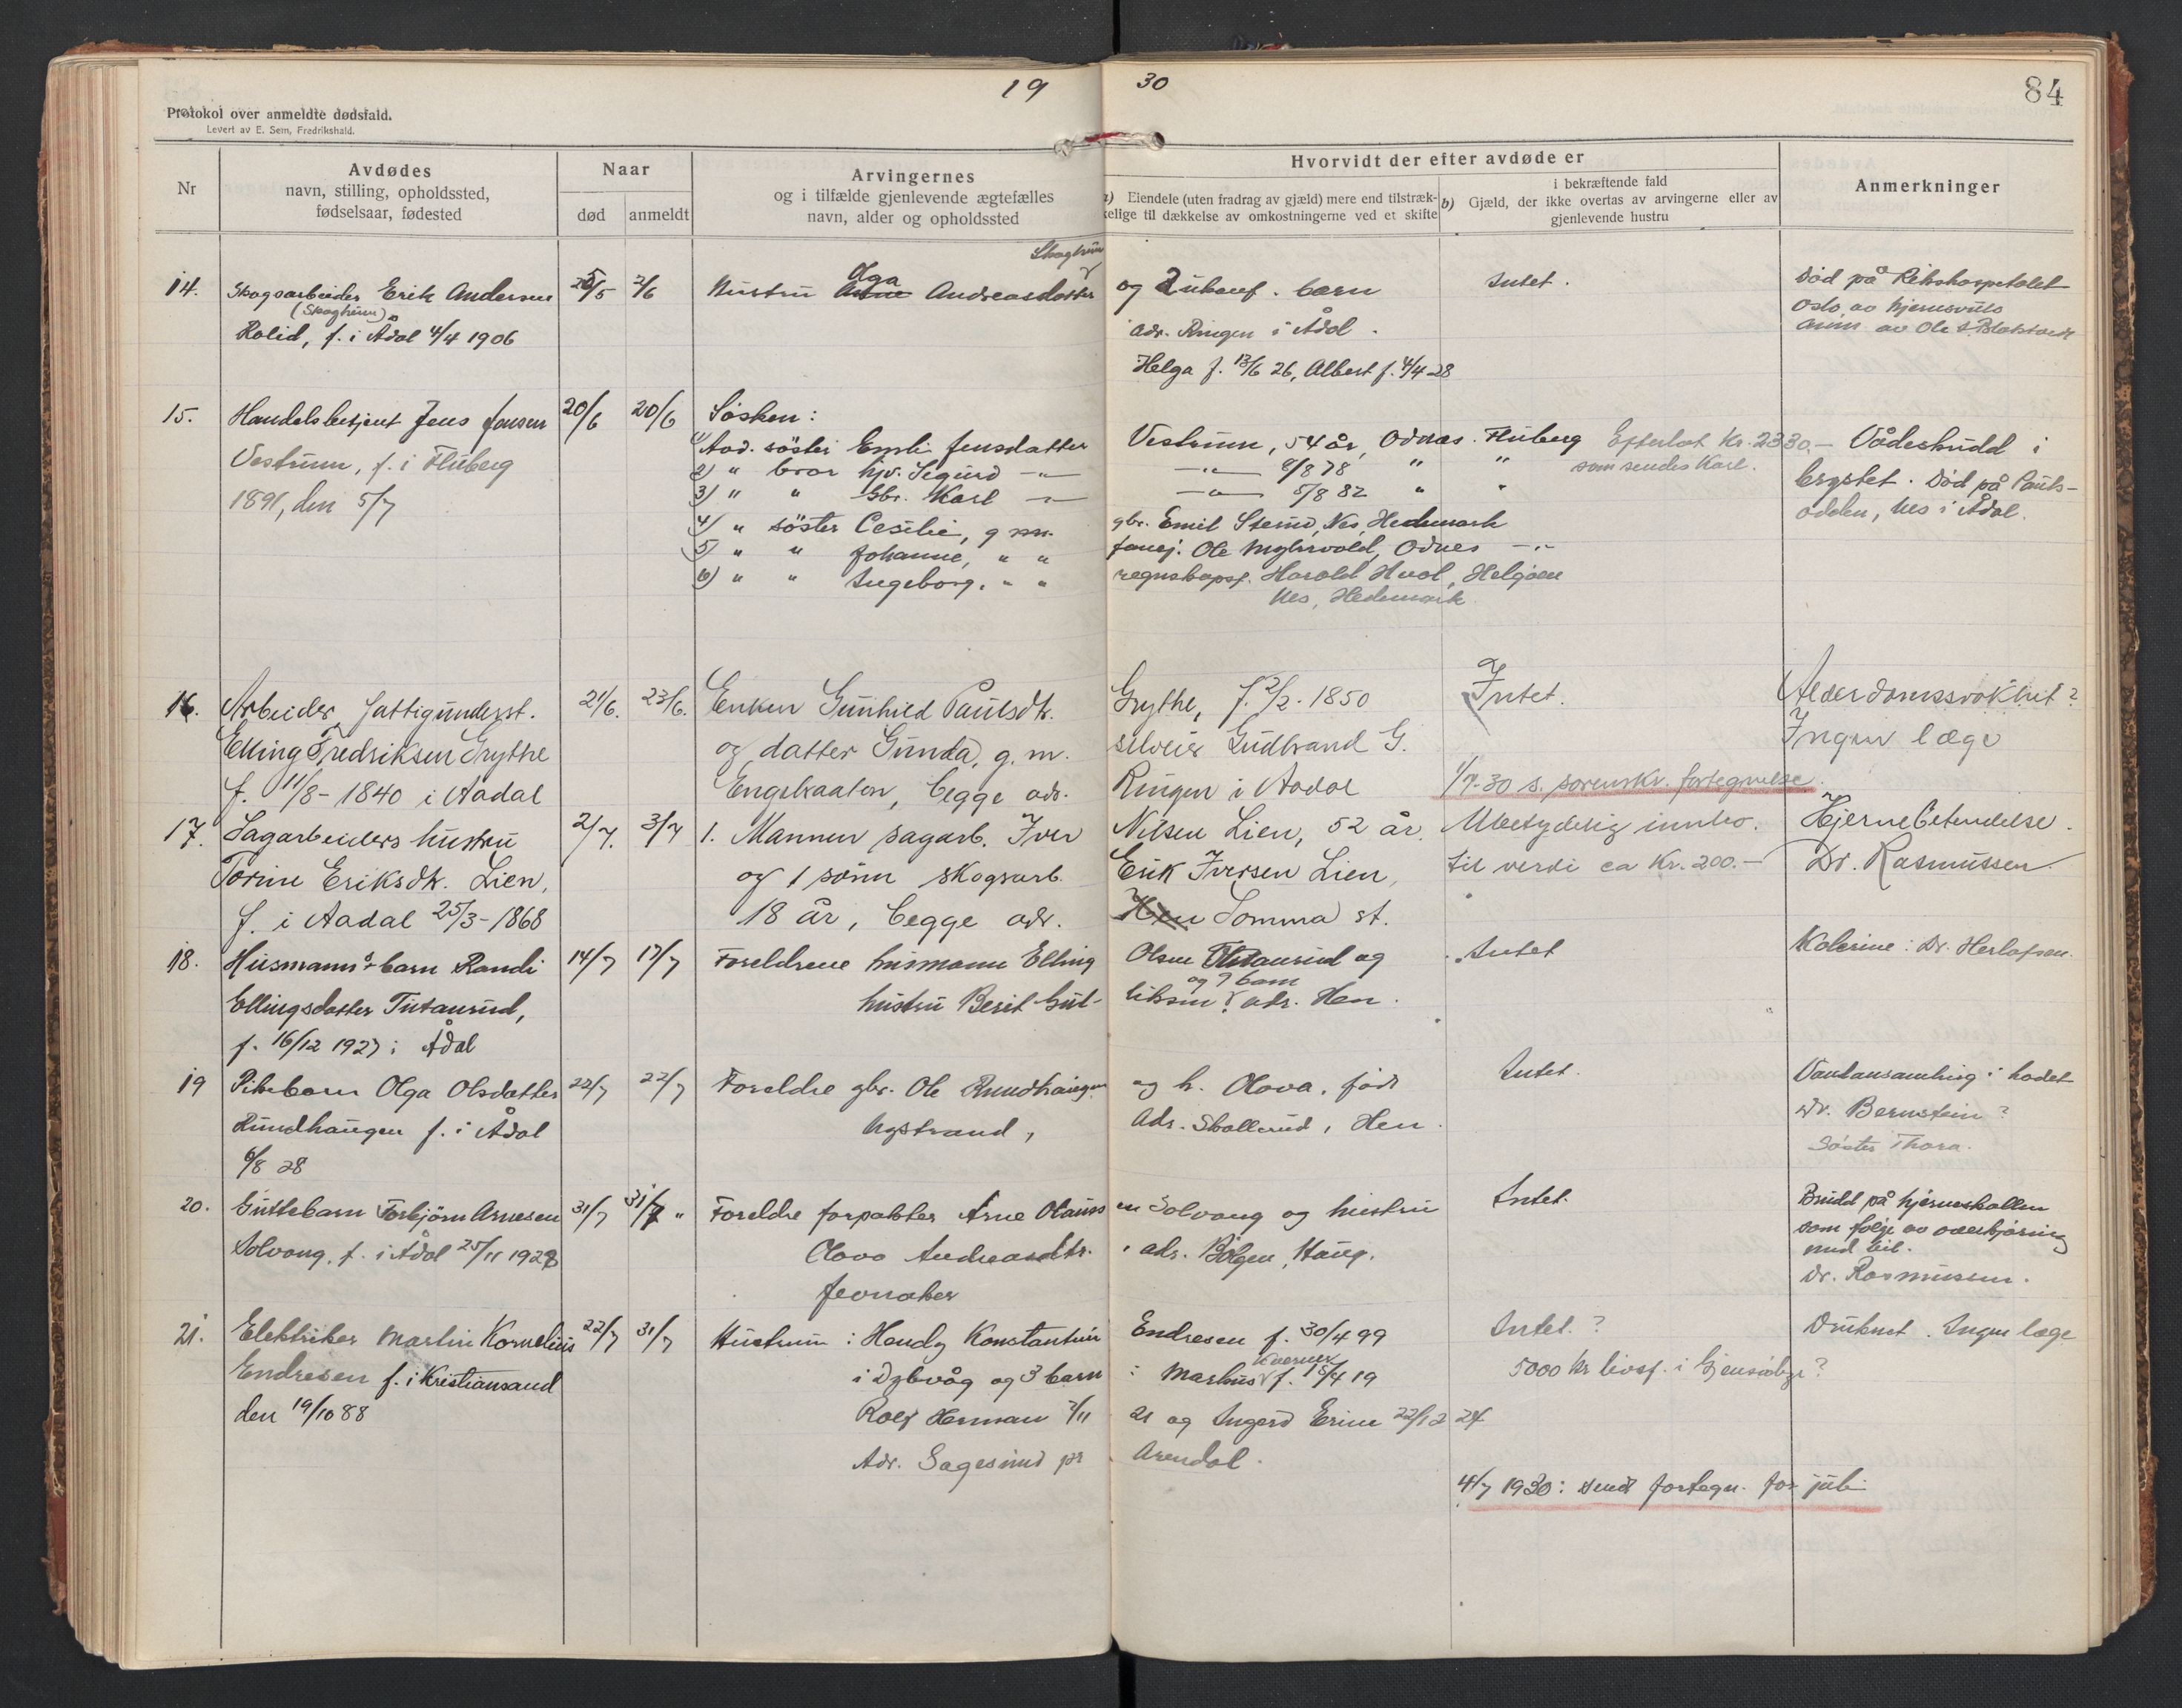 19 30
84
Protokol over anmeldte dødsfald.
Levert av E. Sem, Fredrikshald.
Nr
Avdødes
navn, stilling, opholdssted,
fødselsaar, fødested
Naar
død
anmeldt
Arvingernes
og i tilfælde gjenlevende ægtefælles
navn, alder og opholdssted
Hvorvidt der efter avdøde er
a) Eiendele (uten fradrag av gjæld) mere end tilstræk-
kelige til dækkelse av omkostningerne ved et skifte
i bekræftende fald
b) Gjæld, der ikke overtas av arvingerne eller av
gjenlevende hustru
Anmerkninger
14. Skogsarbeider Erik Andersen 2/6 Hustru Olga Andreasdatter og 2 barn Intet. Død på Rikshospitalet
(Skogheim) adr. Ringen i Ådal. Oslo, av hjernesvuls
Rolid, f. i Ådal 4/4 1906 Helga f. 13/6 26, Albert f. 4/4 28
15. Handelsbetjent Jens Jensen 20/6 20/6 Søsken:
1) Avd. söster Emili Jensdatter Vestrum, 54 år, Odnes. Fluberg Efterlot Kr. 2330.- Vådeskudd i
Vestrum, f. i Fluberg 2) " bror hjv. Sigurd -"- -"- 8/8 78 " " som sendes Karl. brystet. Død på Pauls-
1891, den 5/7 3) " " Gbr. Karl -"- -"- 5/8 82 " " odden, Nes i Ådal.
4) " söster Cecilie, g m. gbr. Emil Stenud, Nes, Hedemark
5) " " Johanne, " " Ole Myhrvold, Odnes -"-
6) " " Ingeborg, " " regnskapsf. Harald Hval, Helgøen
Nes, Hedemark
16. Arbeider, fattigunderst. 21/6. 23/6. Enken Gunhild Paulsdtr. Grythe, f. 2/2-1850 Intet. Alderdomssvakhet?
Elling Fredriksen Grythe og datter Gunda, g. m. Gudbrand G. Ingen læge
f. 11/8-1840 i Aadal Engebraaten, begge adr. Ringen i Aadal 1/7-30 s. sorenskr. fortegnelse.
17. Sagarbeiders hustru 2/7. 3/7 1. Mannen sagarb. Iver Nilsen Lien, 52 år. Ubetydelig innbo. Hjernebetendelse.
Torine Eriksdtr. Lien, og 1 sönn skogsarb. Erik Iversen Lien, til verdi ca Kr. 200.- Dr. Rasmussen
f. i Aadal 25/3-1868 18 år, begge adr. Hen Somma st.
18. Husmanns barn Randi 14/7 17/7 Foreldrene husmann Elling Olsen Tutanrud og Intet Kolerine: Dr. Herlofsen.
Ellingsdatter Tutanrud, hustru Berit Gut- og 7 barn
f. 16/12 1927 i Ådal adr. Hen.
19 Pikebarn Olga Olsdatter 22/7 22/7 Foreldre gbr. Ole Rundhaugen og h. Olava, født Intet. Vandansamling i hodet
Rundhaugen f. i Ådal Nystrand, Adr. Skollerud, Hen. Dr. Bernstein?
6/8 28 Søster Thora.
20. Guttebarn Torbjörn Arnesen 31/7 31/7 " Foreldre forpakter Arne Olaussen Solvang og hustru Intet. Brudd på hjerneskallen
Solvang, f. i Ådal 25/11 1928 Olava Andreasdtr. adr. Bölgen, Haug. som følge av overkjøring
med bil.
Jevnaker Dr. Rasmussen.
21. Elektriker Martin Kornelius 22/7 31/7 Hustrum: Hendy Konstantin Endresen f. 30/4 99 Intet.? Druknet. Ingen læge
Endresen f. i Kristiansand i Dybvåg og 3 barn: Markus f. 18/4 19 5000 kr livsf. i ?
den 19/10 88 Rolf Herman 7/11 21 og Ingerd Erine 22/12 24
Adr. Sagesund pr Arendal.
4/7 1930: sendt fortegn. for juli